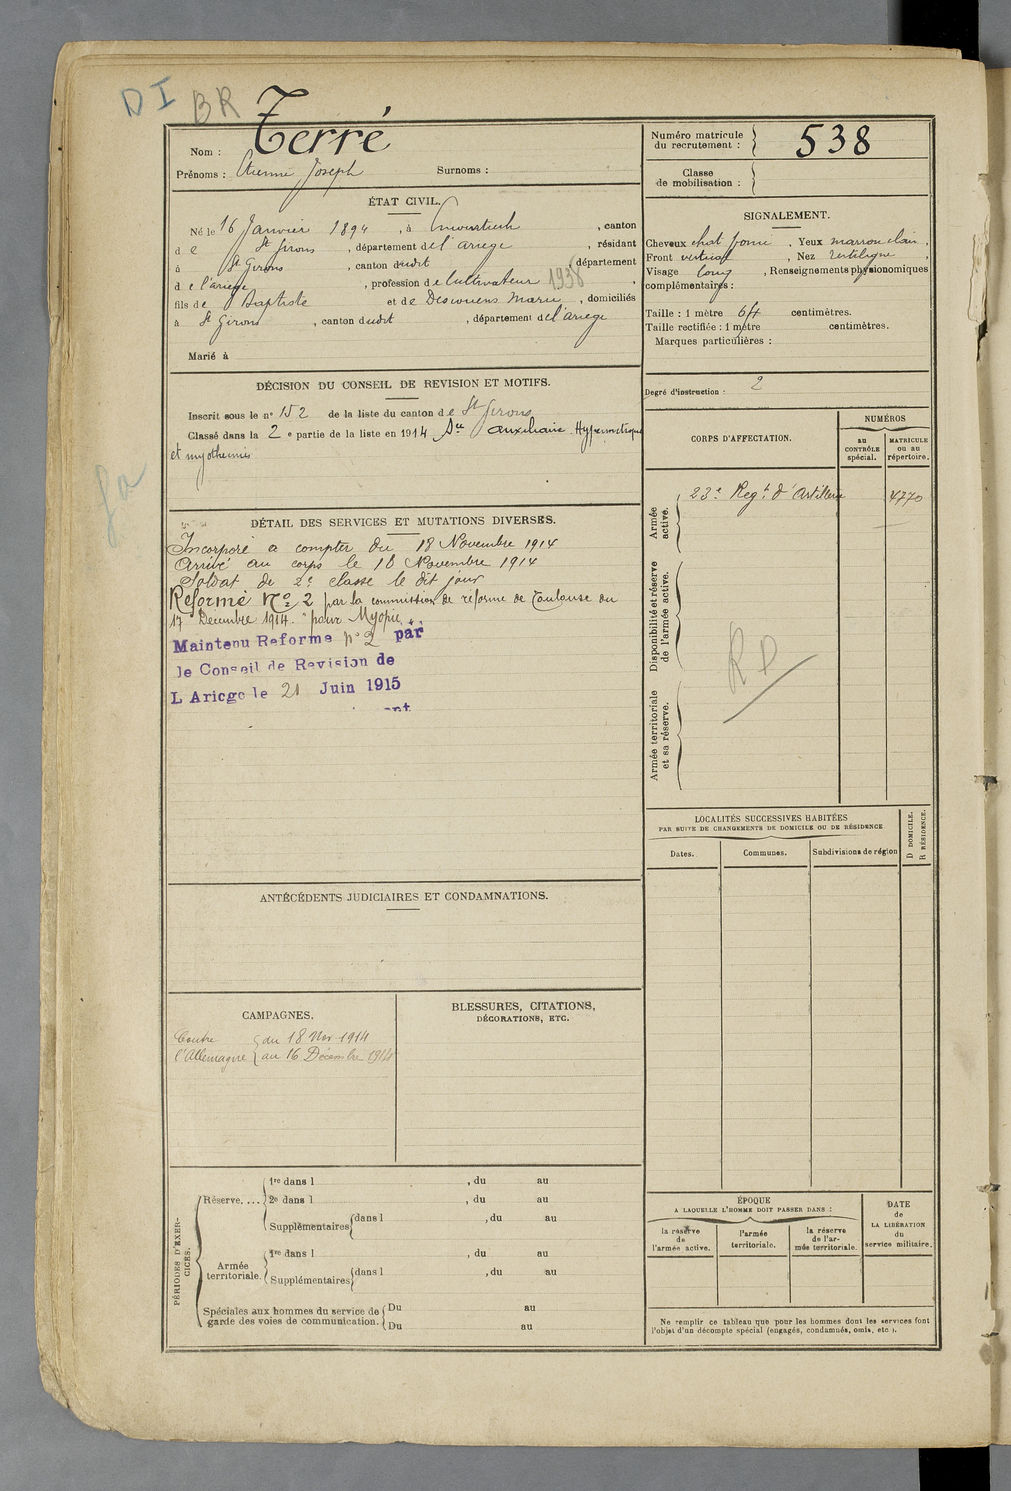 DI BR
Terré
Nom :
Prénoms : Etienne Joseph Surnoms :
Numéro matricule
du recrutement : 538
Classe
de mobilisation :
ÉTAT CIVIL.
Né le 16 Janvier 1894, à , canton
de St Girons, département de l'ariege, résidant
à St Girons, canton dudit, département
de l'ariege, profession de Cultivateur 1938,
fils de Baptiste et de Descouens Marie, domiciliés
à St Girons, canton dudit, département de l'ariege
Marié à
SIGNALEMENT.
Cheveux chat foncé. Yeux marron clair,
Front vertical, Nez rectiligne,
Visage long, Renseignements physionomiques
complémentaires :
Taille : 1 mètre 64 centimètres.
Taille rectifiée : 1 mètre centimètres.
Marques particulières :
Degré d'instruction : 2
DÉCISION DU CONSEIL DE REVISION ET MOTIFS.
Inscrit sous le n° 152 de la liste du canton de St Girons
Classé dans la 2 e partie de la liste en 1914 Sce auxiliaire. Hypermétropie
et
DÉTAIL DES SERVICES ET MUTATIONS DIVERSES.
Incorporé a compter du 18 Novembre 1914
Arrivé au corps le 18 Novembre 1914
Soldat de 2e classe le dit jour
Reformé No 2 par la commission de reforme de Toulouse du
17 Decembre 1914. "pour Myopie".
Maintenu Reforme n° 2 par
le Conseil de Revision de
L Ariege le 21 Juin 1915
CORPS D'AFFECTATION.
NUMÉROS
au
CONTRÔLE
spécial.
MATRICULE
ou au
répertoire.
Armée
active.
23e Regt d'Artillerie 4770
Disponibilité et réserve
de l'armée active.
RD
Armée territoriale
et sa réserve.
LOCALITÉS SUCCESSIVES HABITÉES
PAR SUITE DE CHANGEMENTS DE DOMICILE OU DE RÉSIDENCE
Dates. Communes. Subdivisions de région
D DOMICILE.
R RÉSIDENCE.
ANTÉCÉDENTS JUDICIAIRES ET CONDAMNATIONS.
CAMPAGNES.
Contre du 18 Nov. 1914
l'Allemagne au 16 Décembre 1914
BLESSURES, CITATIONS,
DÉCORATIONS, ETC.
PÉRIODES D'EXER-
CICES.
Réserve....
1re dans l , du au
2e dans l , du au
Supplémentaires dans l , du au
Armée
territoriale.
1re dans l , du au
Supplémentaires dans l , du au
Spéciales aux hommes du service de
garde des voies de communication.
Du au
Du au
ÉPOQUE
A LAQUELLE L'HOMME DOIT PASSER DANS :
la réserve
de
l'armée active.
l'armée
territoriale.
la réserve
de l'ar-
mée territoriale.
DATE
de
LA LIBÉRATION
du
service militaire.
Ne remplir ce tableau que pour les hommes dont les services font
l'objet d'un décompte spécial (engagés, condamnés, omis, etc.).